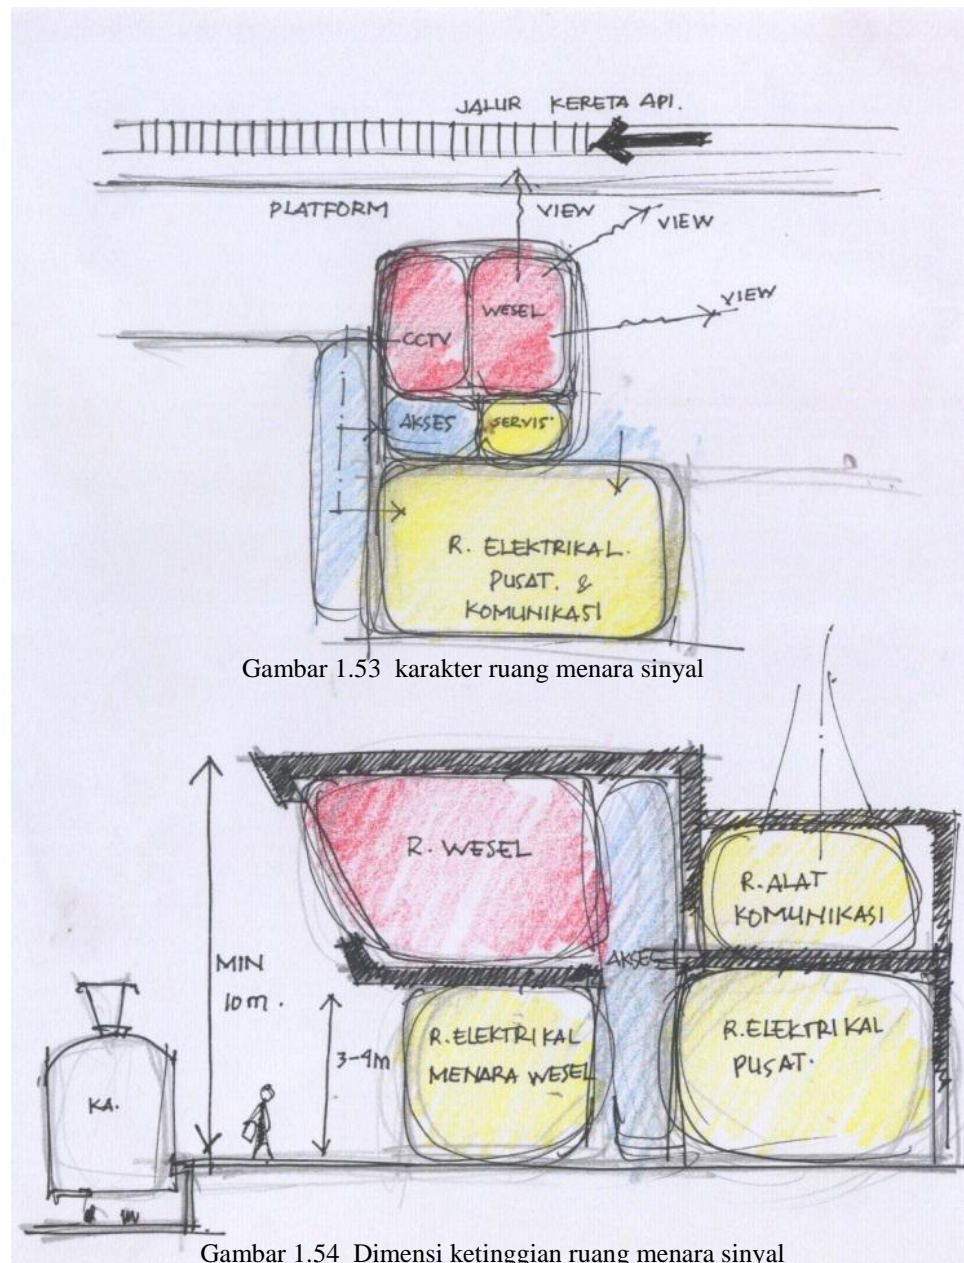 JALUR KERETA API.
PLATFORM
VIEW
VIEW
VIEW
WESEL
CCTV
AKSES
SERVIS
R. ELEKTRIKAL.
PUSAT. &
KOMUNIKASI
Gambar 1.53 karakter ruang menara sinyal
R. WESEL
R. ALAT
KOMUNIKASI
AKSES
MIN
10m.
3-4m
R. ELEKTRIKAL
MENARA WESEL
R. ELEKTRIKAL
PUSAT.
KA.
Gambar 1.54 Dimensi ketinggian ruang menara sinyal